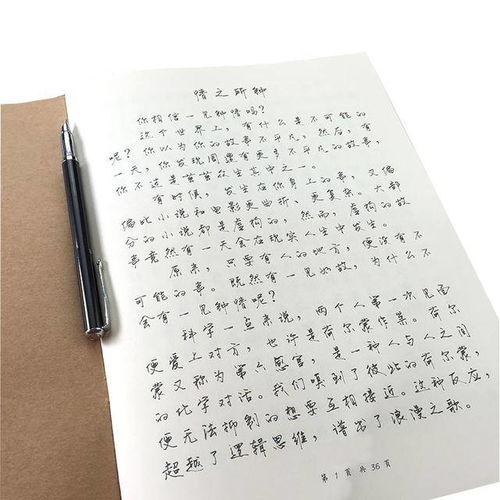 情之所钟
你相信一见钟情吗?
这个世界上,有什么是不可能的
呢?你以为你的故事不平凡,然后,有
一天,你发现周围有更多不平凡的故事,
你不过是茫茫众生其中之一。
有时候,发生在你身上的事,又偏
偏比小说和电影更曲折、更复杂。大部
分的小说都是虚构的,然而,虚构的故
事竟然有一天会在现实人生中发生。
原来,只要有人的地方,便没有不
可能的事。既然有一见如故,为什么不
会有一见钟情呢?
科学一点来说,两个人第一次见面
便爱上对方,也许是荷尔蒙作祟。荷尔
蒙又称为第六感官,是一种人与人之间
的化学对话。我们嗅到了彼此的荷尔蒙,
便无法抑制的想要互相接近。这种反应,
超越了逻辑思维,谱写了浪漫之歌。
第 1 页 共 36 页